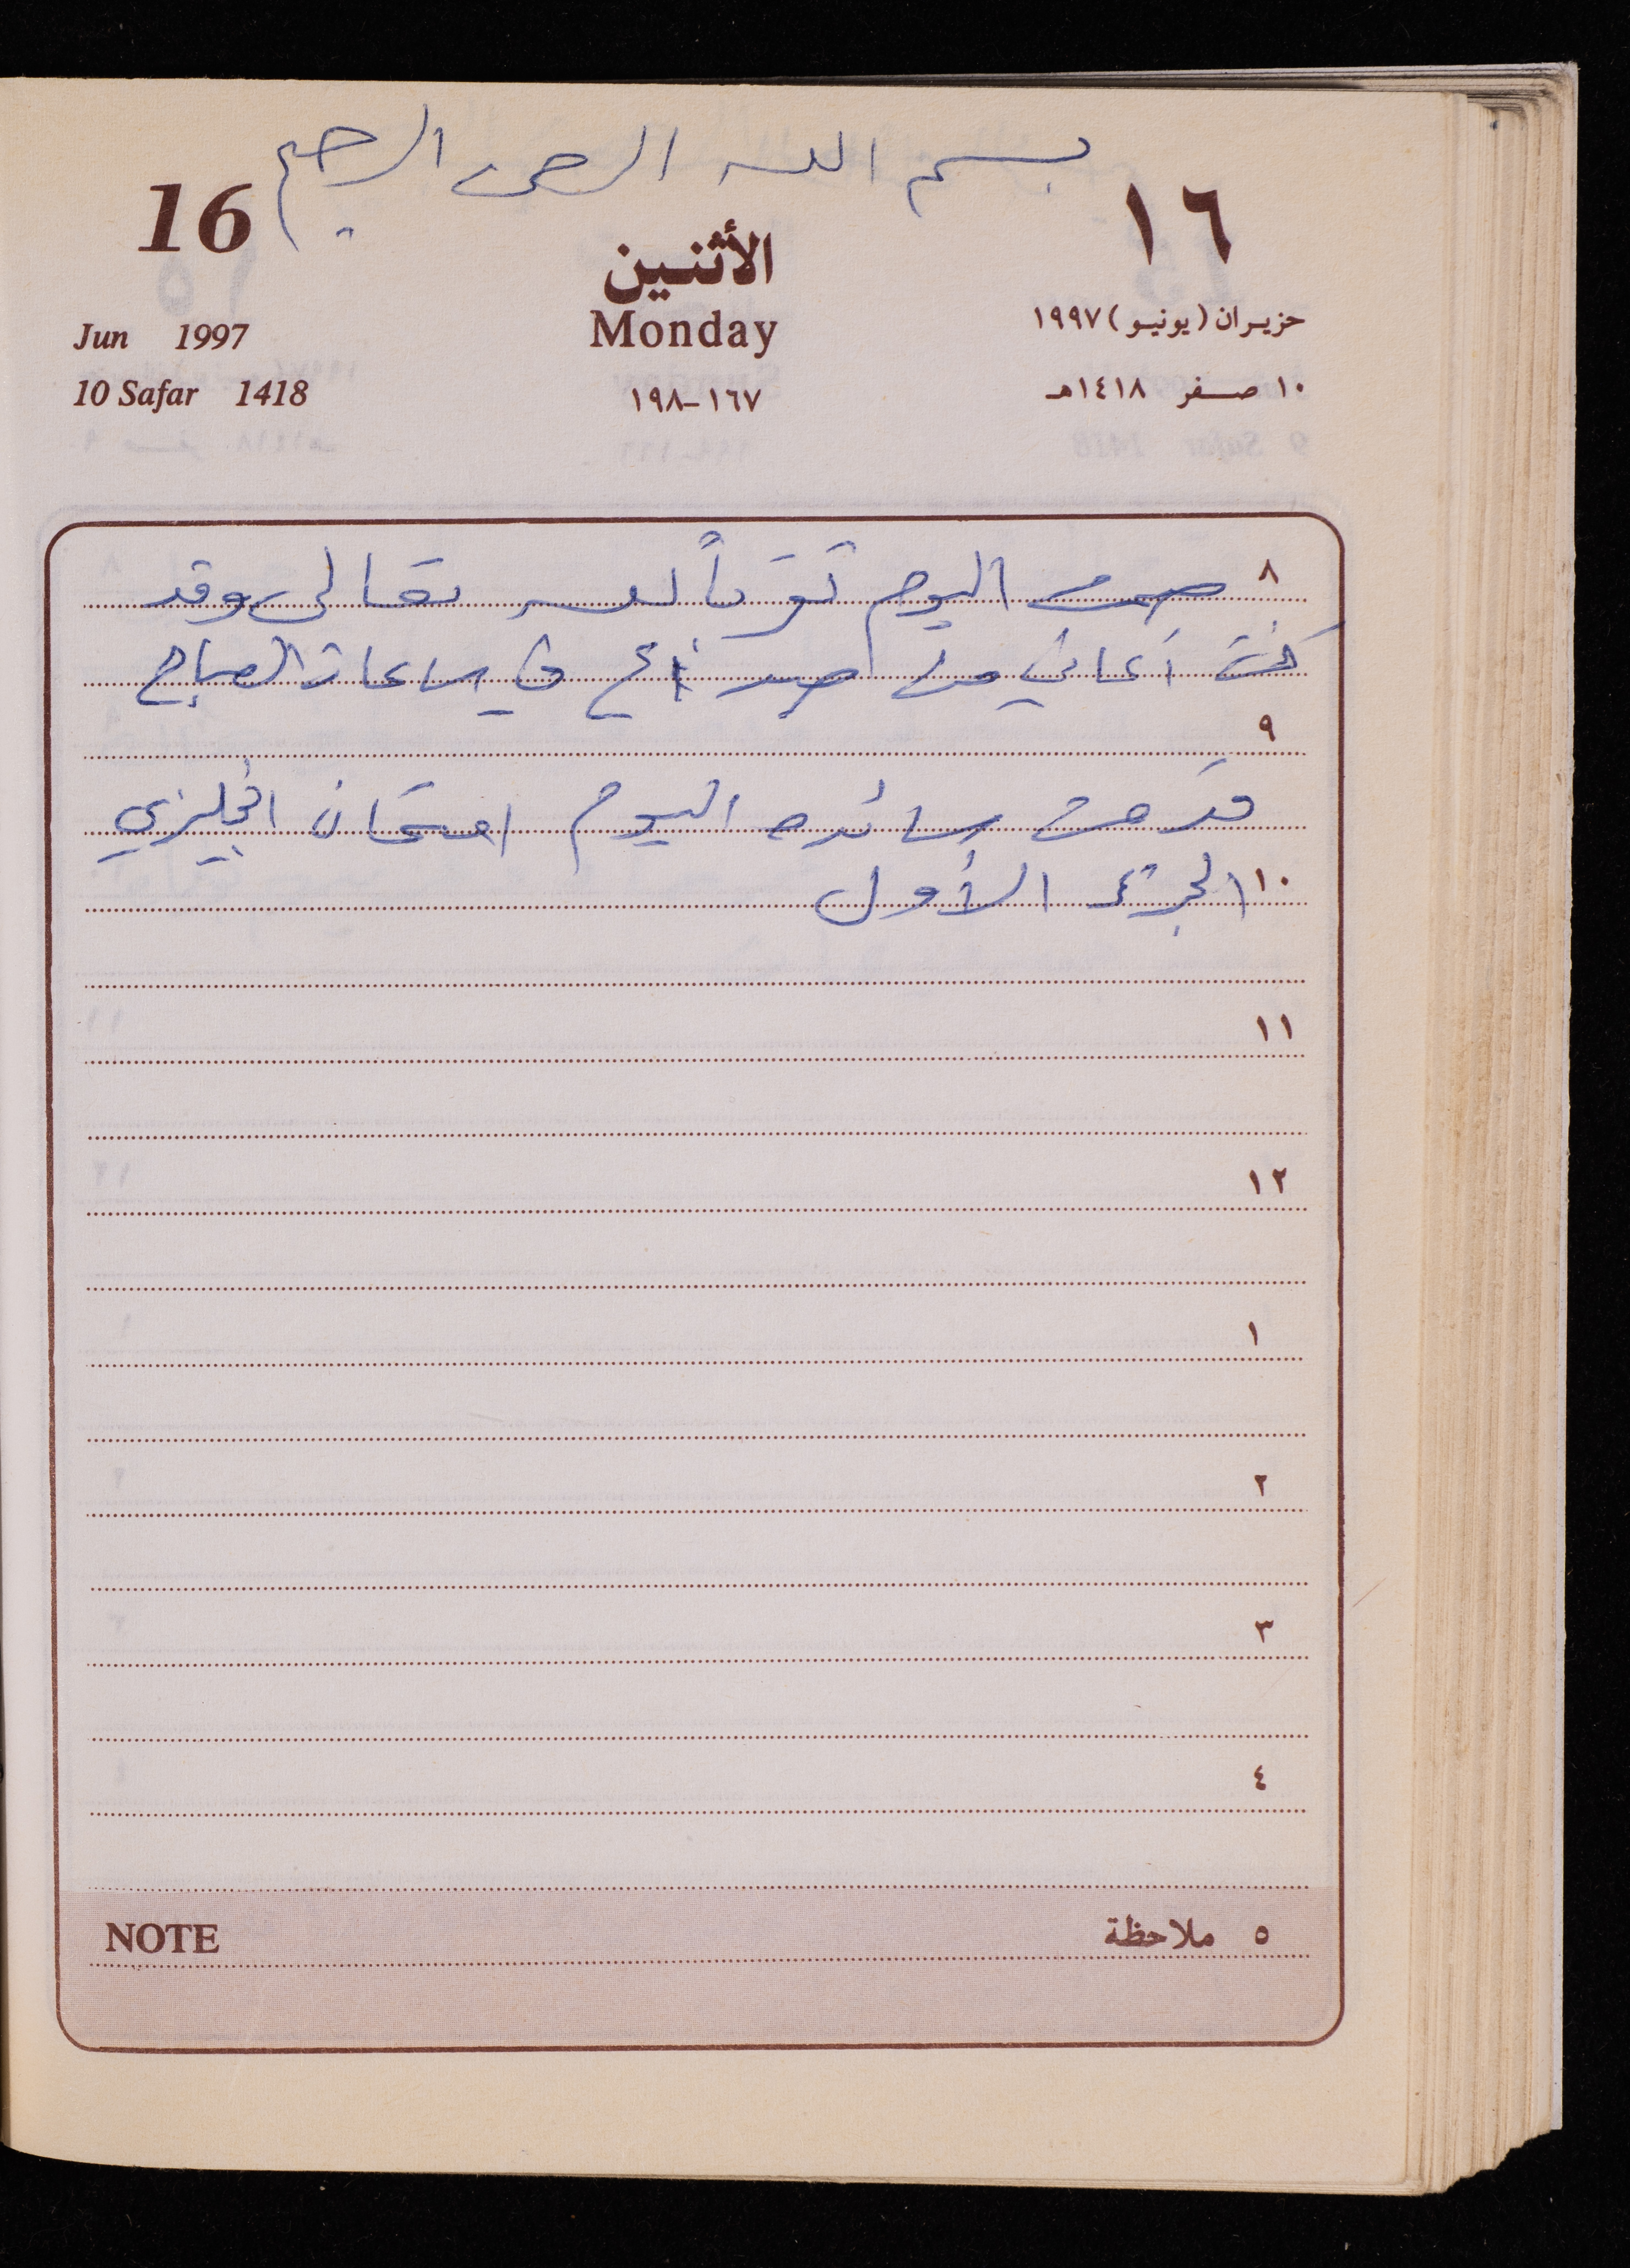 بسم الله الرحمن الرحيم
16
١٦
الأثنين
Monday
Jun 1997
حزيران (يونيو) ١٩٩٧
10 Safar 1418
١٦٧-١٩٨
١٠ صفر ١٤١٨هـ
٨ صمت اليوم تقرباً لله تعالى وقد
كنت أعاني من صداع في ساعات الصباح
٩
قدمت سائده اليوم امتحان انجليزي
١٠ الجزء الأول
١١
١٢
١
٢
٣
٤
NOTE
٥ ملاحظة